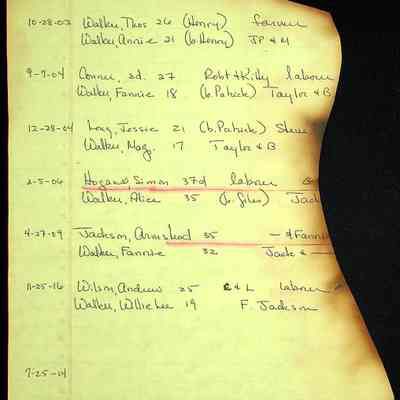 10-28-03 Walker, Thos 26 (Henry) farmer
Walker, Annie 21 (b. Henry) JP & M
9-7-04 Conner, Ed. 27 Robt & Kitty laborer
Walker, Fannie 18 (b. Patrick) Taylor & B
12-28-04 Long, Jessie 21 (b. Patrick)
Walker, Mag. 17 Taylor & B
2-5-06 Hogans, Simon 37d laborer
Walker, Alice 35 (b. Giles) Jack
4-27-09 Jackson, Armstead 35 — & Fannie
Walker, Fannie 32 Jack & —
11-25-16 Wilson, Andrew 25 E & L laborer
Walker, Willie Lee 19 F. Jackson
7-25-14